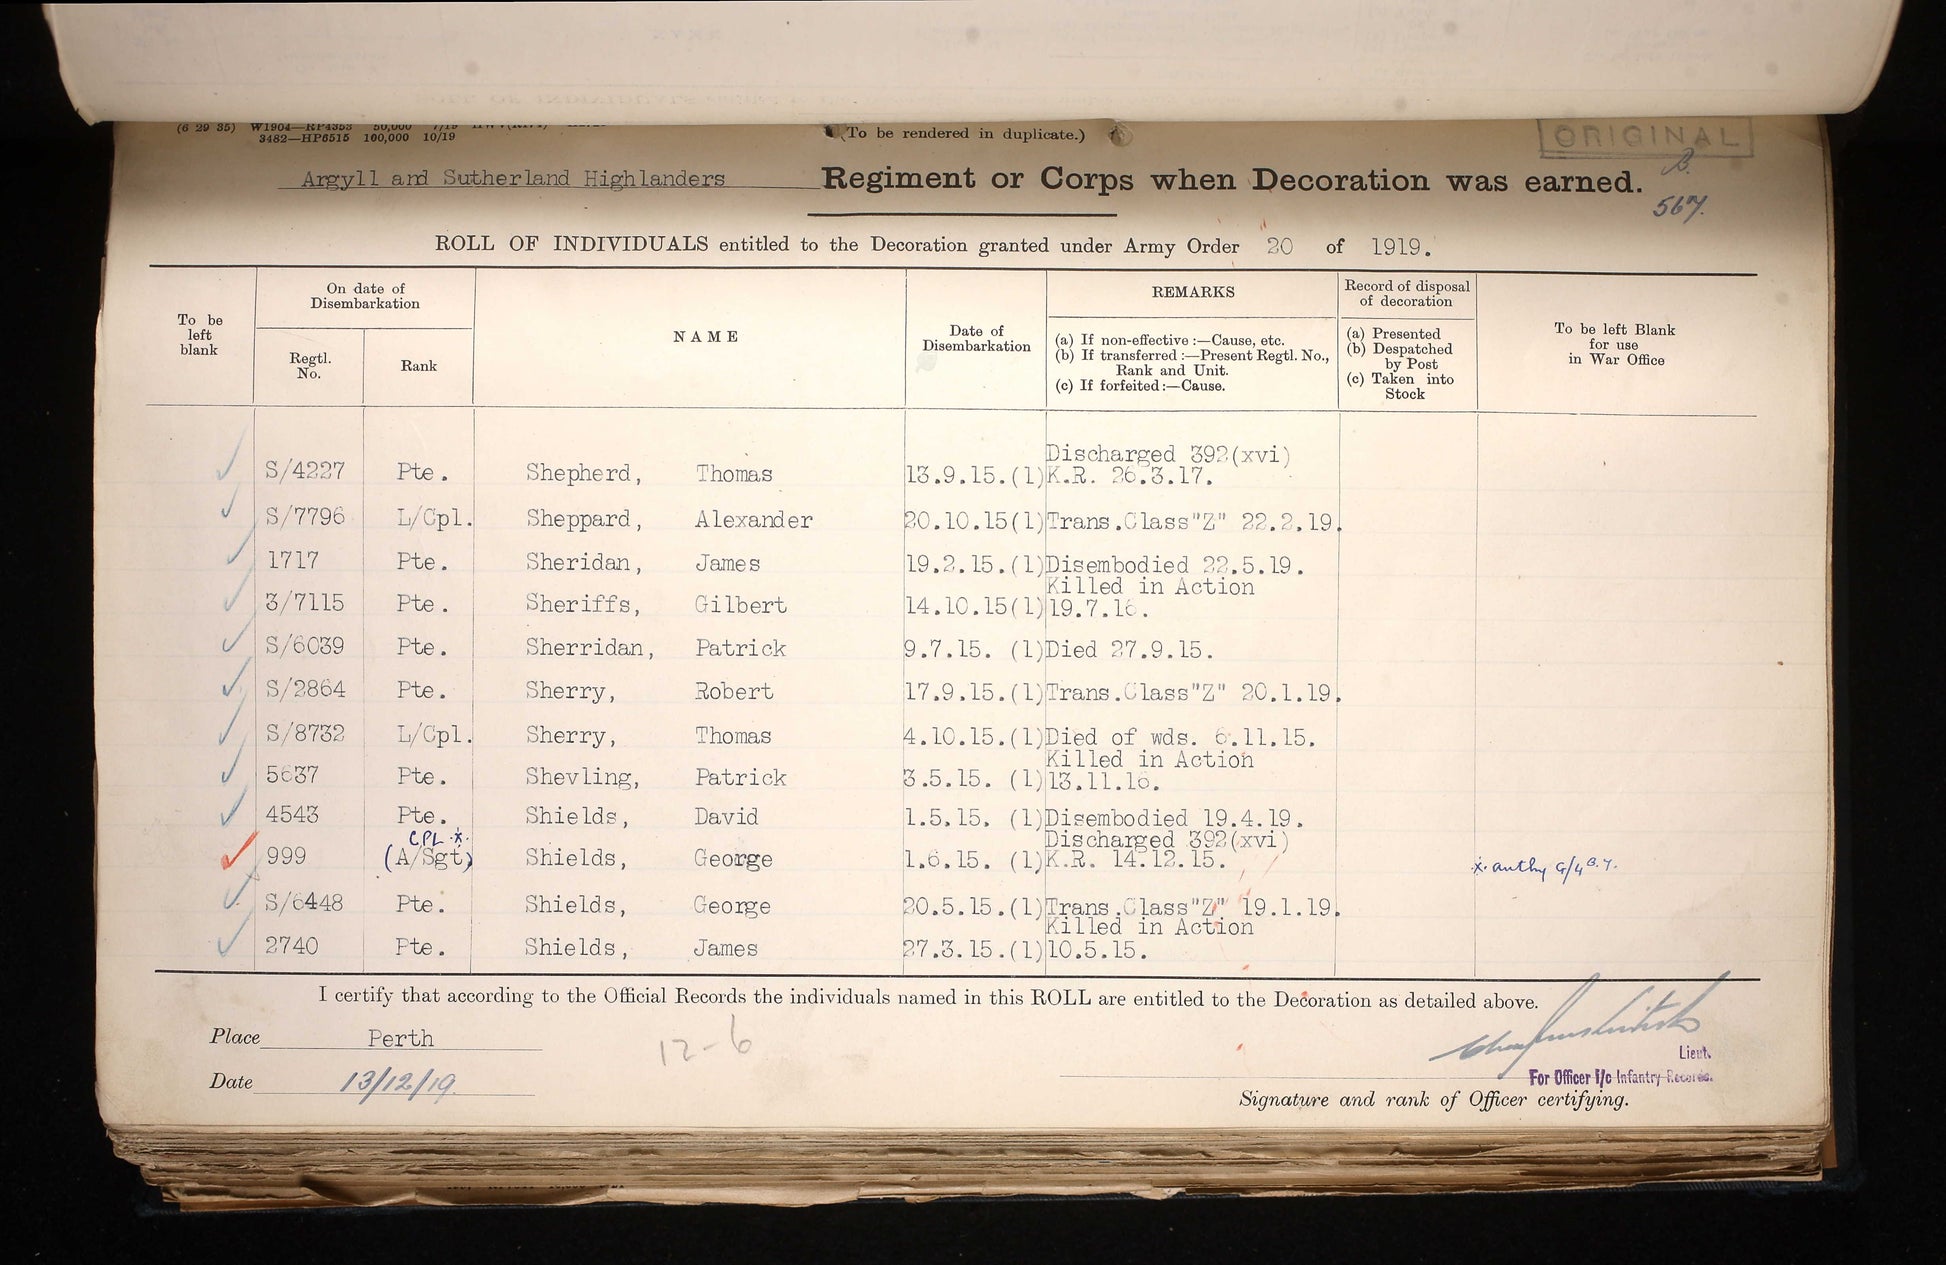 (6 29 35) W1904—RP4353 50,000 7/19
3482—HP6515 100,000 10/19
(To be rendered in duplicate.)
ORIGINAL
Argyll and Sutherland Highlanders Regiment or Corps when Decoration was earned.
567.
ROLL OF INDIVIDUALS entitled to the Decoration granted under Army Order 20 of 1919.
To be left blank
On date of Disembarkation
Regtl. No.
Rank
NAME
Date of Disembarkation
REMARKS
(a) If non-effective :—Cause, etc.
(b) If transferred :—Present Regtl. No., Rank and Unit.
(c) If forfeited :—Cause.
Record of disposal of decoration
(a) Presented
(b) Despatched by Post
(c) Taken into Stock
To be left Blank for use in War Office
S/4227 Pte. Shepherd, Thomas 13.9.15.(1) Discharged 392(xvi) K.R. 26.3.17.
S/7796 L/Cpl. Sheppard, Alexander 20.10.15(1) Trans.Class"Z" 22.2.19.
1717 Pte. Sheridan, James 19.2.15.(1) Disembodied 22.5.19.
3/7115 Pte. Sheriffs, Gilbert 14.10.15(1) Killed in Action 19.7.16.
S/6039 Pte. Sherridan, Patrick 9.7.15. (1) Died 27.9.15.
S/2864 Pte. Sherry, Robert 17.9.15.(1) Trans.Class"Z" 20.1.19.
S/8732 L/Cpl. Sherry, Thomas 4.10.15.(1) Died of wds. 6.11.15.
5637 Pte. Shevling, Patrick 3.5.15. (1) Killed in Action 13.11.16.
4543 Pte. Shields, David 1.5.15. (1) Disembodied 19.4.19.
999 CPL.x. (A/Sgt) Shields, George 1.6.15. (1) Discharged 392(xvi) K.R. 14.12.15. x. authy G/4 B.7.
S/6448 Pte. Shields, George 20.5.15.(1) Trans.Class"Z" 19.1.19.
2740 Pte. Shields, James 27.3.15.(1) Killed in Action 10.5.15.
I certify that according to the Official Records the individuals named in this ROLL are entitled to the Decoration as detailed above.
Place Perth
12-6
Date 13/12/19.
Lieut.
For Officer I/c Infantry Records.
Signature and rank of Officer certifying.